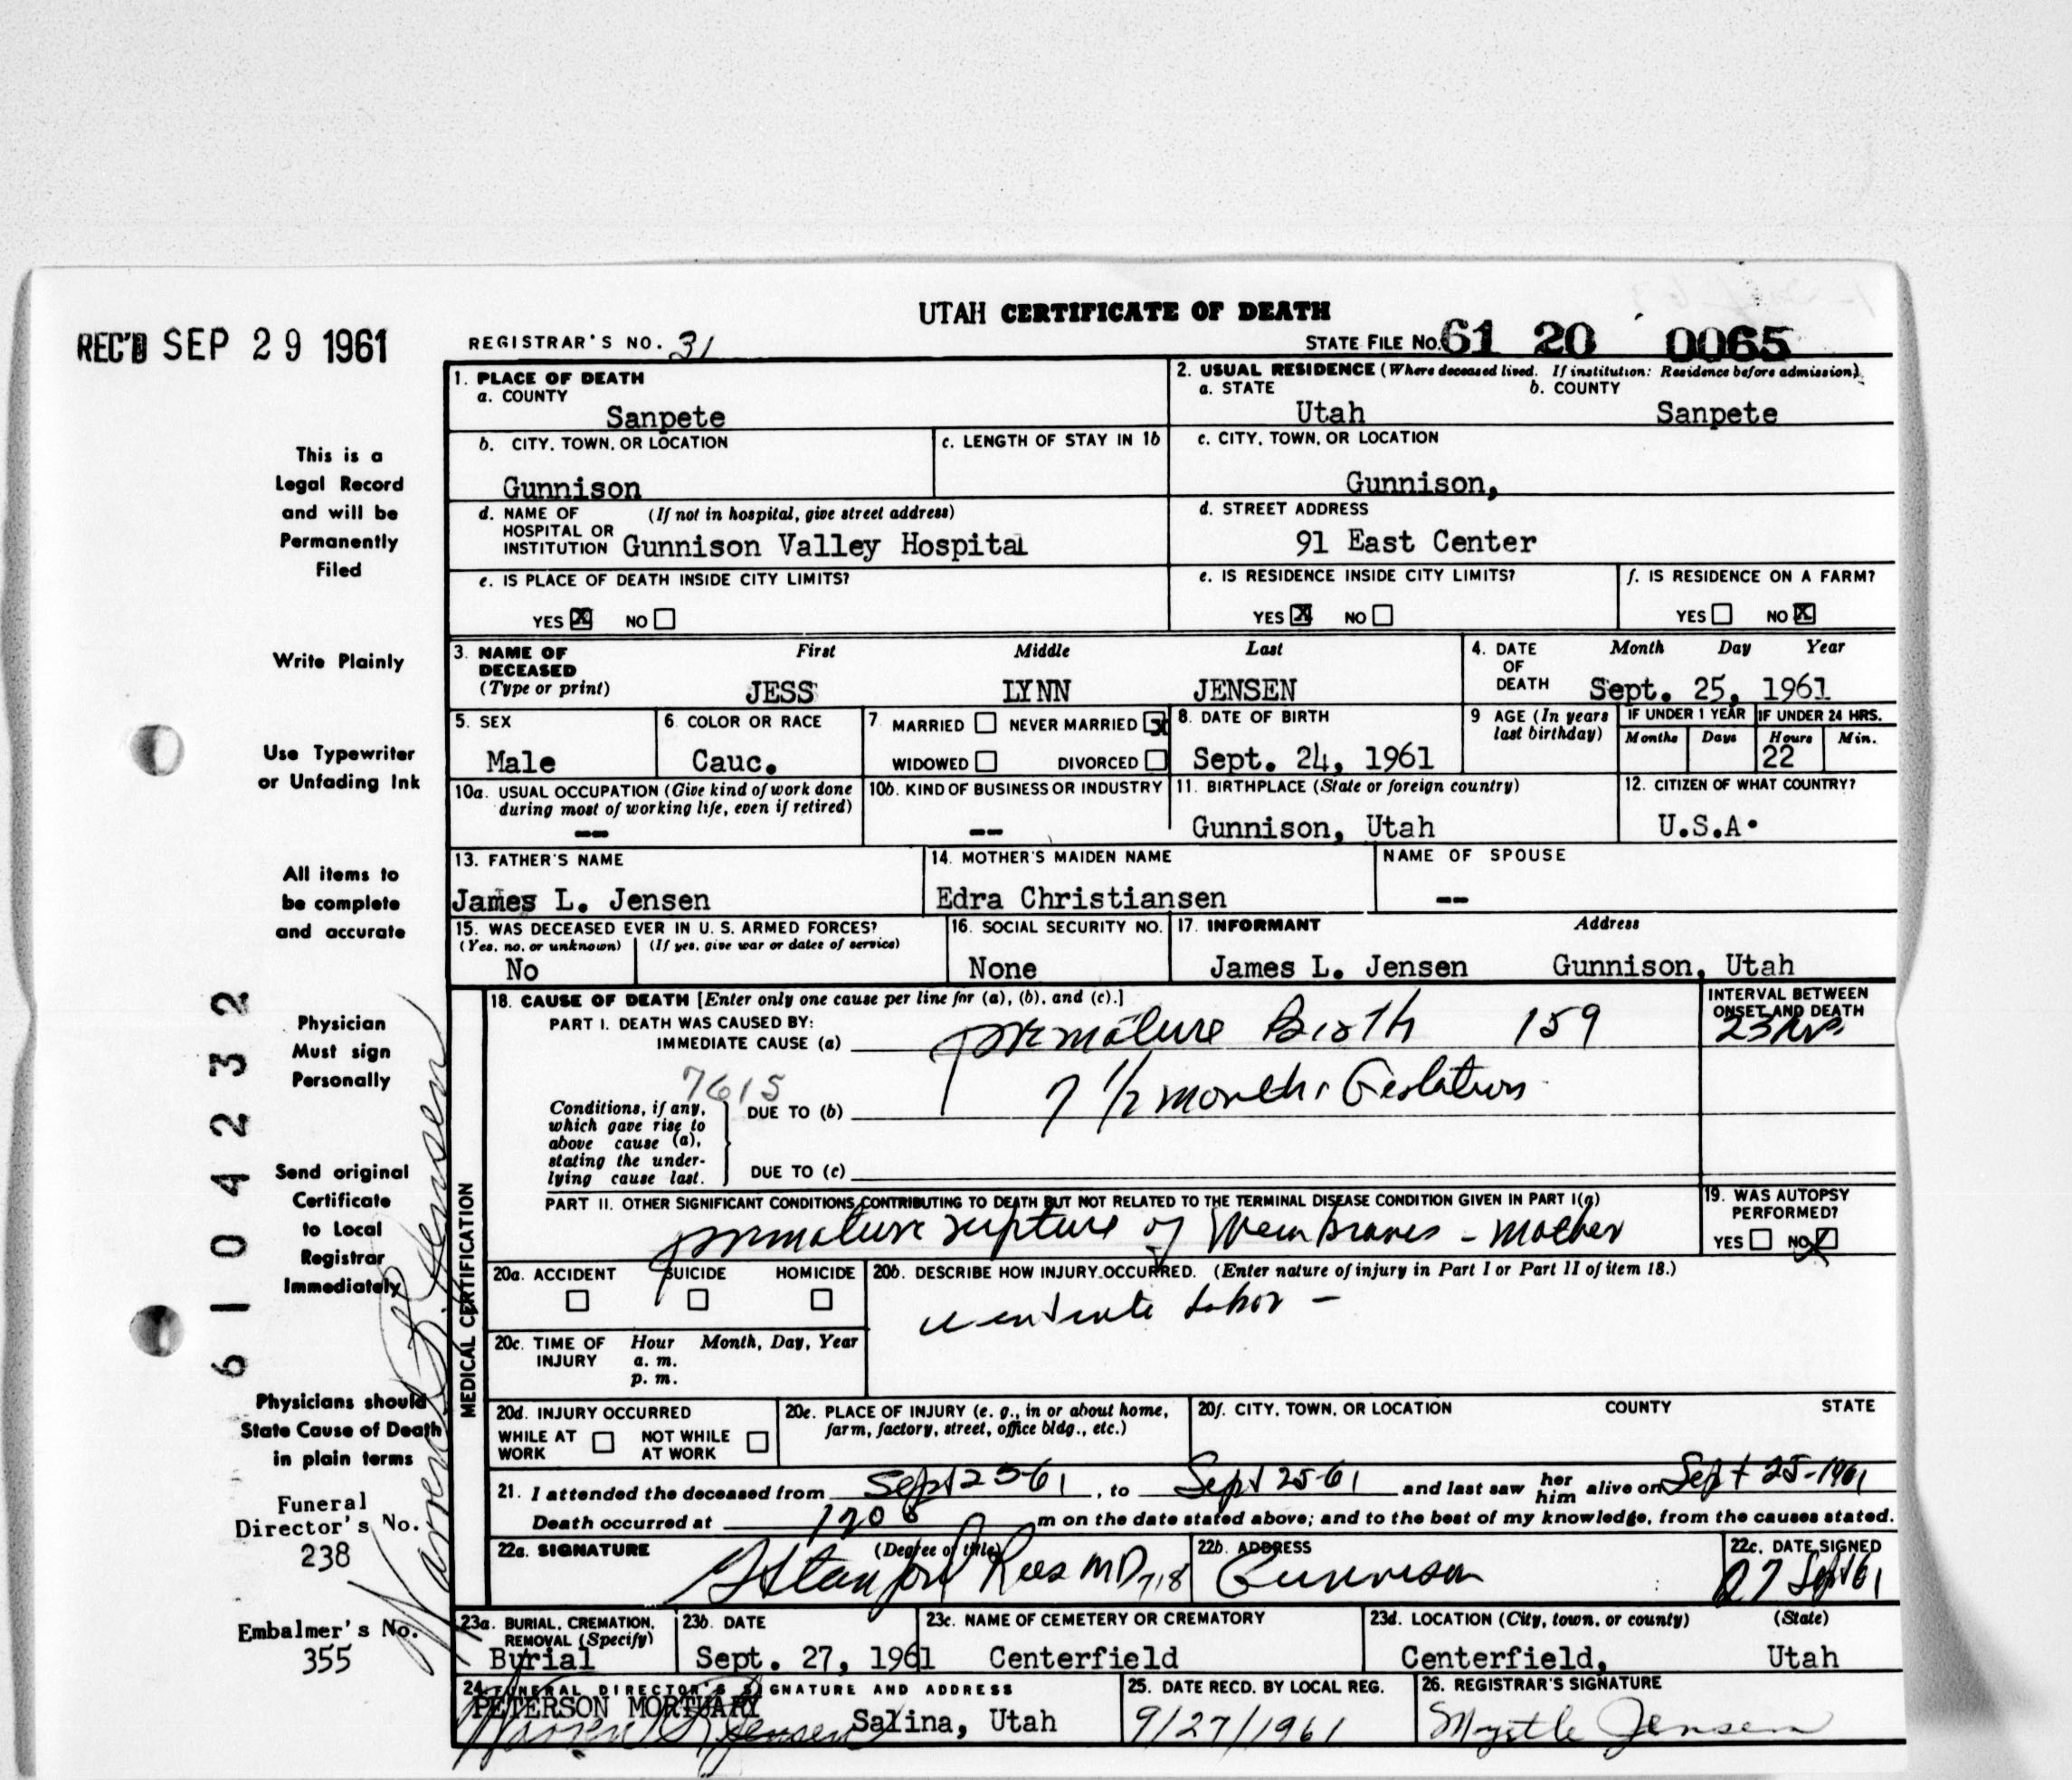 UTAH CERTIFICATE OF DEATH
REC'D SEP 29 1961
REGISTRAR'S NO. 31
STATE FILE NO. 61 20 0065
1. PLACE OF DEATH
a. COUNTY
Sanpete
2. USUAL RESIDENCE (Where deceased lived. If institution: Residence before admission).
a. STATE b. COUNTY
Utah Sanpete
b. CITY, TOWN, OR LOCATION
Gunnison
c. LENGTH OF STAY IN 1b
c. CITY, TOWN, OR LOCATION
Gunnison,
d. NAME OF (If not in hospital, give street address)
HOSPITAL OR
INSTITUTION Gunnison Valley Hospital
d. STREET ADDRESS
91 East Center
e. IS PLACE OF DEATH INSIDE CITY LIMITS?
YES X NO
e. IS RESIDENCE INSIDE CITY LIMITS?
YES X NO
f. IS RESIDENCE ON A FARM?
YES NO X
3. NAME OF DECEASED (Type or print)
First Middle Last
JESS LYNN JENSEN
4. DATE OF DEATH
Month Day Year
Sept. 25, 1961
5. SEX
Male
6. COLOR OR RACE
Cauc.
7. MARRIED NEVER MARRIED X
WIDOWED DIVORCED
8. DATE OF BIRTH
Sept. 24, 1961
9 AGE (In years last birthday)
IF UNDER 1 YEAR
Months Days
IF UNDER 24 HRS.
Hours Min.
22
10a. USUAL OCCUPATION (Give kind of work done during most of working life, even if retired)
--
10b. KIND OF BUSINESS OR INDUSTRY
--
11. BIRTHPLACE (State or foreign country)
Gunnison, Utah
12. CITIZEN OF WHAT COUNTRY?
U.S.A.
13. FATHER'S NAME
James L. Jensen
14. MOTHER'S MAIDEN NAME
Edra Christiansen
NAME OF SPOUSE
--
15. WAS DECEASED EVER IN U. S. ARMED FORCES?
(Yes, no, or unknown) (If yes, give war or dates of service)
No
16. SOCIAL SECURITY NO.
None
17. INFORMANT Address
James L. Jensen Gunnison, Utah
MEDICAL CERTIFICATION
18. CAUSE OF DEATH [Enter only one cause per line for (a), (b), and (c).]
PART I. DEATH WAS CAUSED BY:
IMMEDIATE CAUSE (a) premature Birth 159
INTERVAL BETWEEN ONSET AND DEATH
23 hrs
7615
Conditions, if any, which gave rise to above cause (a), stating the underlying cause last.
DUE TO (b) 7 1/2 months Gestation
DUE TO (c)
PART II. OTHER SIGNIFICANT CONDITIONS CONTRIBUTING TO DEATH BUT NOT RELATED TO THE TERMINAL DISEASE CONDITION GIVEN IN PART I(a)
premature rupture of Membranes - mother
19. WAS AUTOPSY PERFORMED?
YES NO X
20a. ACCIDENT SUICIDE HOMICIDE
20b. DESCRIBE HOW INJURY OCCURRED. (Enter nature of injury in Part I or Part II of item 18.)
labor -
20c. TIME OF INJURY Hour Month, Day, Year
a. m.
p. m.
20d. INJURY OCCURRED
WHILE AT WORK NOT WHILE AT WORK
20e. PLACE OF INJURY (e. g., in or about home, farm, factory, street, office bldg., etc.)
20f. CITY, TOWN, OR LOCATION COUNTY STATE
21. I attended the deceased from Sept 25 61, to Sept 25-61 and last saw her him alive on Sept 25-1961
Death occurred at 1208 m on the date stated above; and to the best of my knowledge, from the causes stated.
22a. SIGNATURE (Degree or title)
G Stanford Rees MD 718
22b. ADDRESS
Gunnison
22c. DATE SIGNED
27 Sept 61
23a. BURIAL, CREMATION, REMOVAL (Specify)
Burial
23b. DATE
Sept. 27, 1961
23c. NAME OF CEMETERY OR CREMATORY
Centerfield
23d. LOCATION (City, town, or county) (State)
Centerfield, Utah
24. FUNERAL DIRECTOR'S SIGNATURE AND ADDRESS
PETERSON MORTUARY
Salina, Utah
25. DATE RECD. BY LOCAL REG.
9/27/1961
26. REGISTRAR'S SIGNATURE
Myrtle Jensen
This is a
Legal Record
and will be
Permanently
Filed
Write Plainly
Use Typewriter
or Unfading Ink
All items to
be complete
and accurate
Physician
Must sign
Personally
Send original
Certificate
to Local
Registrar
Immediately
Physicians should
State Cause of Death
in plain terms
Funeral
Director's No.
238
Embalmer's No.
355
61 04232